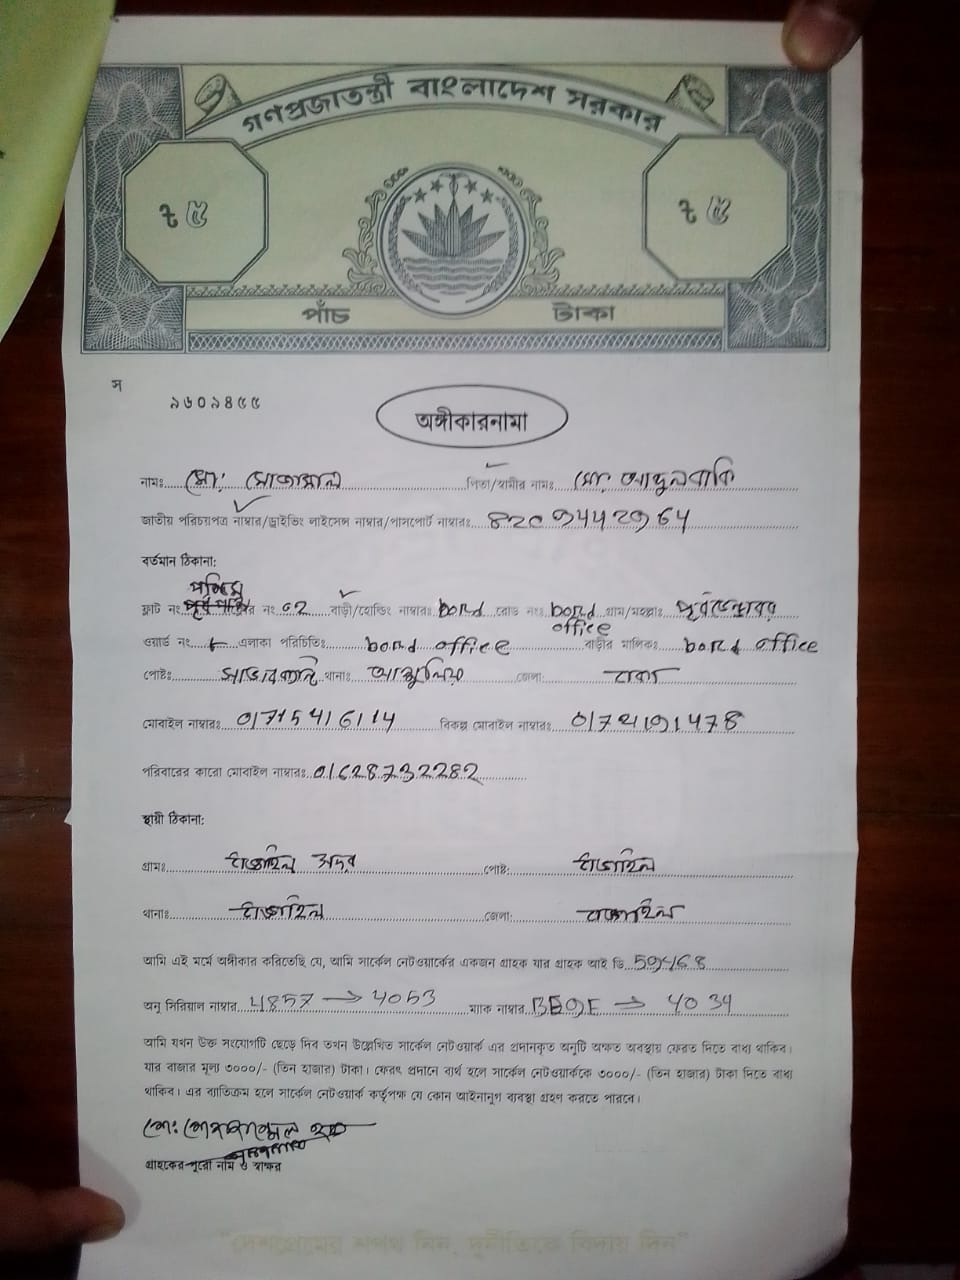 গণপ্রজাতন্ত্রী বাংলাদেশ সরকার
৳ ৫ ৳ ৫
পাঁচ টাকা
স
৯৬০৯৪৫৫
অঙ্গীকারনামা
নামঃ মোঃ পিতা/স্বামীর নামঃ মোঃ
জাতীয় পরিচয়পত্র নাম্বার/ড্রাইভিং লাইসেন্স নাম্বার/পাসপোর্ট নাম্বারঃ
বর্তমান ঠিকানা:
পশ্চিম
ফ্লাট নং নং ০২ বাড়ী/হোল্ডিং নাম্বারঃ bord রোড নংঃ bord গ্রাম/মহল্লাঃ
office
ওয়ার্ড নং এলাকা পরিচিতিঃ bord office বাড়ীর মালিকঃ bord office
পোষ্টঃ থানাঃ আশুলিয়া জেলা: ঢাকা
মোবাইল নাম্বারঃ 01715416114 বিকল্প মোবাইল নাম্বারঃ
পরিবারের কারো মোবাইল নাম্বারঃ 01628732282
স্থায়ী ঠিকানা:
গ্রামঃ টাঙ্গাইল সদর পোষ্ট: টাঙ্গাইল
থানাঃ টাঙ্গাইল জেলা: টাঙ্গাইল
আমি এই মর্মে অঙ্গীকার করিতেছি যে, আমি সার্কেল নেটওয়ার্কের একজন গ্রাহক যার গ্রাহক আই ডি
অনু সিরিয়াল নাম্বার 4857 → 4053 ম্যাক নাম্বার → 4034
আমি যখন উক্ত সংযোগটি ছেড়ে দিব তখন উল্লেখিত সার্কেল নেটওয়ার্ক এর প্রদানকৃত অনুটি অক্ষত অবস্থায় ফেরত দিতে বাধ্য থাকিব।
যার বাজার মূল্য ৩০০০/- (তিন হাজার) টাকা। ফেরৎ প্রদানে ব্যর্থ হলে সার্কেল নেটওয়ার্ককে ৩০০০/- (তিন হাজার) টাকা দিতে বাধ্য
থাকিব। এর ব্যতিক্রম হলে সার্কেল নেটওয়ার্ক কর্তৃপক্ষ যে কোন আইনানুগ ব্যবস্থা গ্রহণ করতে পারবে।
মোঃ
গ্রাহকের পুরো নাম ও স্বাক্ষর
"দেশপ্রেমের শপথ নিন, দুর্নীতিকে বিদায় দিন"